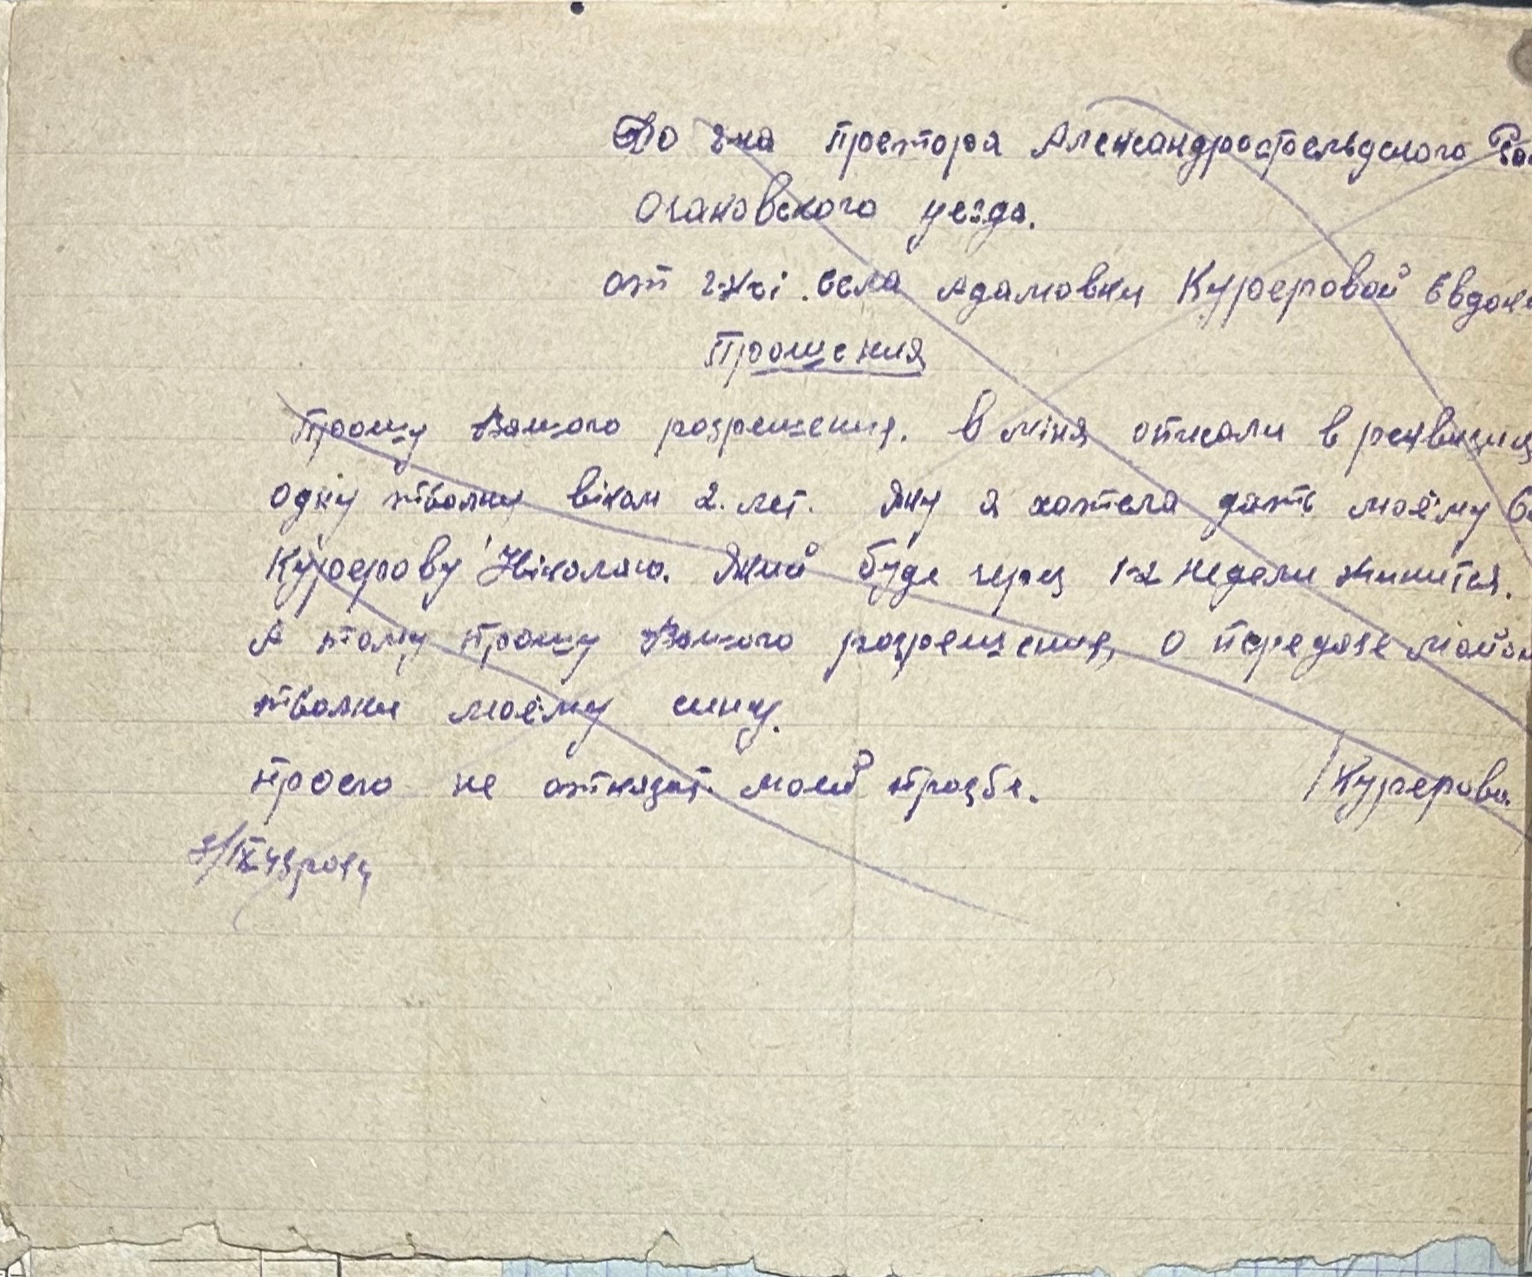 До г-на Претора Александросфельдского Рай
Очаковского уезда.
от г-жі села Адамовки Кучеровой Евдок
Прошения
Прошу Вашого розрешения. В міня описали в реквизиц
одну тволку віком 2. лет. Яку я хотела дать моёму
Кучерову Ніколаю. Який буде через 1-2 недели жинится.
А тому прошу Вашого розрешения, о передаче моюй
тволки моёму сину.
просю не отказат моей прозбе. Кучерова.
/IX 43 року